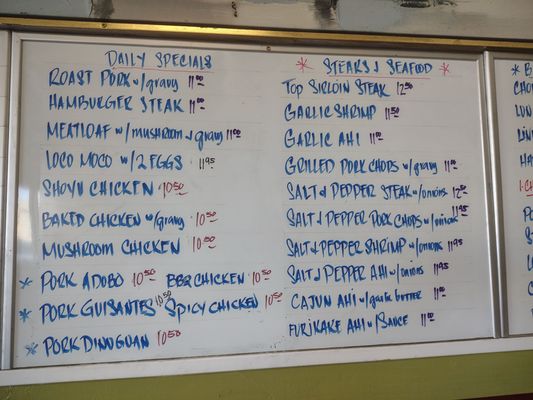 DAILY SPECIALS
ROAST PORK w/gravy 11⁰⁰
HAMBURGER STEAK 11⁰⁰
MEATLOAF w/mushroom & gravy 11⁰⁰
LOCO MOCO w/2 EGGS 11.95
SHOYU CHICKEN 10.50
BAKED CHICKEN w/gravy 10.50
MUSHROOM CHICKEN 10.50
* PORK ADOBO 10.50 BBQ CHICKEN 10.50
* PORK GUISANTES 10.50 SPICY CHICKEN 10.50
* PORK DINUGUAN 10.50
* STEAKS & SEAFOOD *
TOP SIRLOIN STEAK 12.50
GARLIC SHRIMP 11.50
GARLIC AHI 11.00
GRILLED PORK CHOPS w/gravy 11.00
SALT & PEPPER STEAK w/onions
SALT & PEPPER PORK CHOPS w/onions 11.95
SALT & PEPPER SHRIMP w/onions 11.95
SALT & PEPPER AHI w/onions 11.95
CAJUN AHI w/garlic butter 11.00
FURIKAKE AHI w/SAUCE 11.00